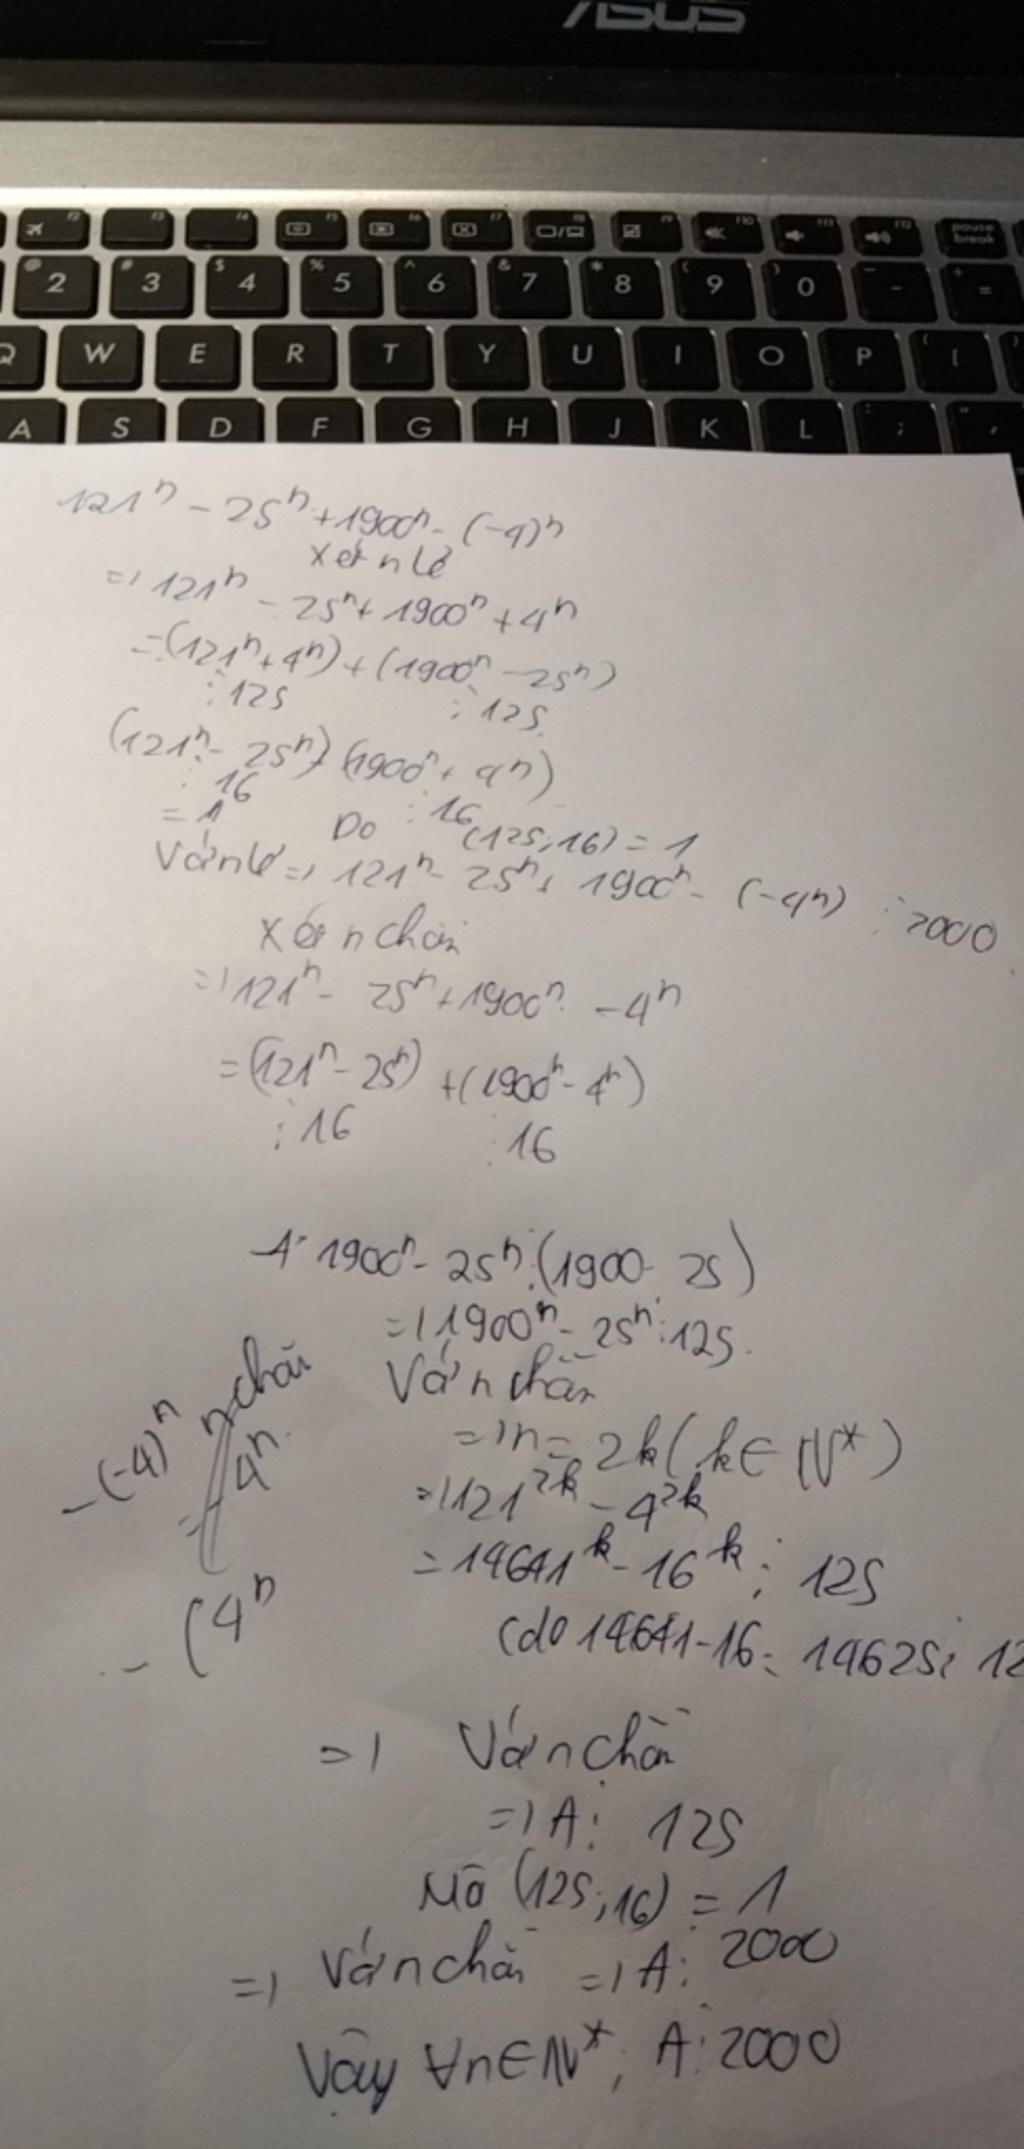 ASUS
f2 f3 f4 f5 f6 f7 f8 f9 f10 f11 f12 pause break
@ 2 # 3 $ 4 % 5 ^ 6 & 7 * 8 ( 9 ) 0 - + =
Q W E R T Y U I O P [
A S D F G H J K L ;
121ⁿ - 25ⁿ + 1900ⁿ - (-4)ⁿ
Xét n lẻ
=) 121ⁿ - 25ⁿ + 1900ⁿ + 4ⁿ
= (121ⁿ + 4ⁿ) + (1900ⁿ - 25ⁿ)
⋮ 125 ⋮ 125
(121ⁿ - 25ⁿ) + (1900ⁿ + 4ⁿ)
⋮ 16 ⋮ 16
= 1 Do (125; 16) = 1
Với n lẻ =) 121ⁿ - 25ⁿ + 1900ⁿ - (-4ⁿ) ⋮ 2000
Xét n chẵn
=) 121ⁿ - 25ⁿ + 1900ⁿ - 4ⁿ
= (121ⁿ - 25ⁿ) + (1900ⁿ - 4ⁿ)
⋮ 16 ⋮ 16
A: 1900ⁿ - 25ⁿ ⋮ (1900 - 25)
=) 1900ⁿ - 25ⁿ ⋮ 125.
Với n chẵn
=) n = 2k (k ∈ N*)
=) 121²ᵏ - 4²ᵏ
= 14641ᵏ - 16ᵏ ⋮ 125
(do 14641 - 16 = 14625 ⋮ 12
-(-4)ⁿ n chẵn
= 4ⁿ
- (4ⁿ
=) Với n chẵn
=) A ⋮ 125
Mà (125; 16) = 1
=) Với n chẵn =) A ⋮ 2000
Vậy ∀n ∈ N*, A ⋮ 2000